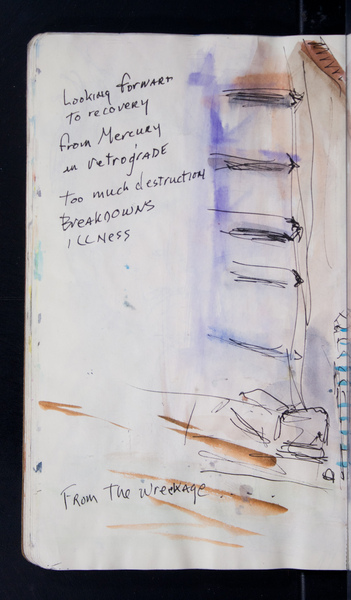 Looking forward
to recovery
from Mercury
in retrograde
too much destruction
BREAKDOWNS
ILLNess
From The Wreckage . .